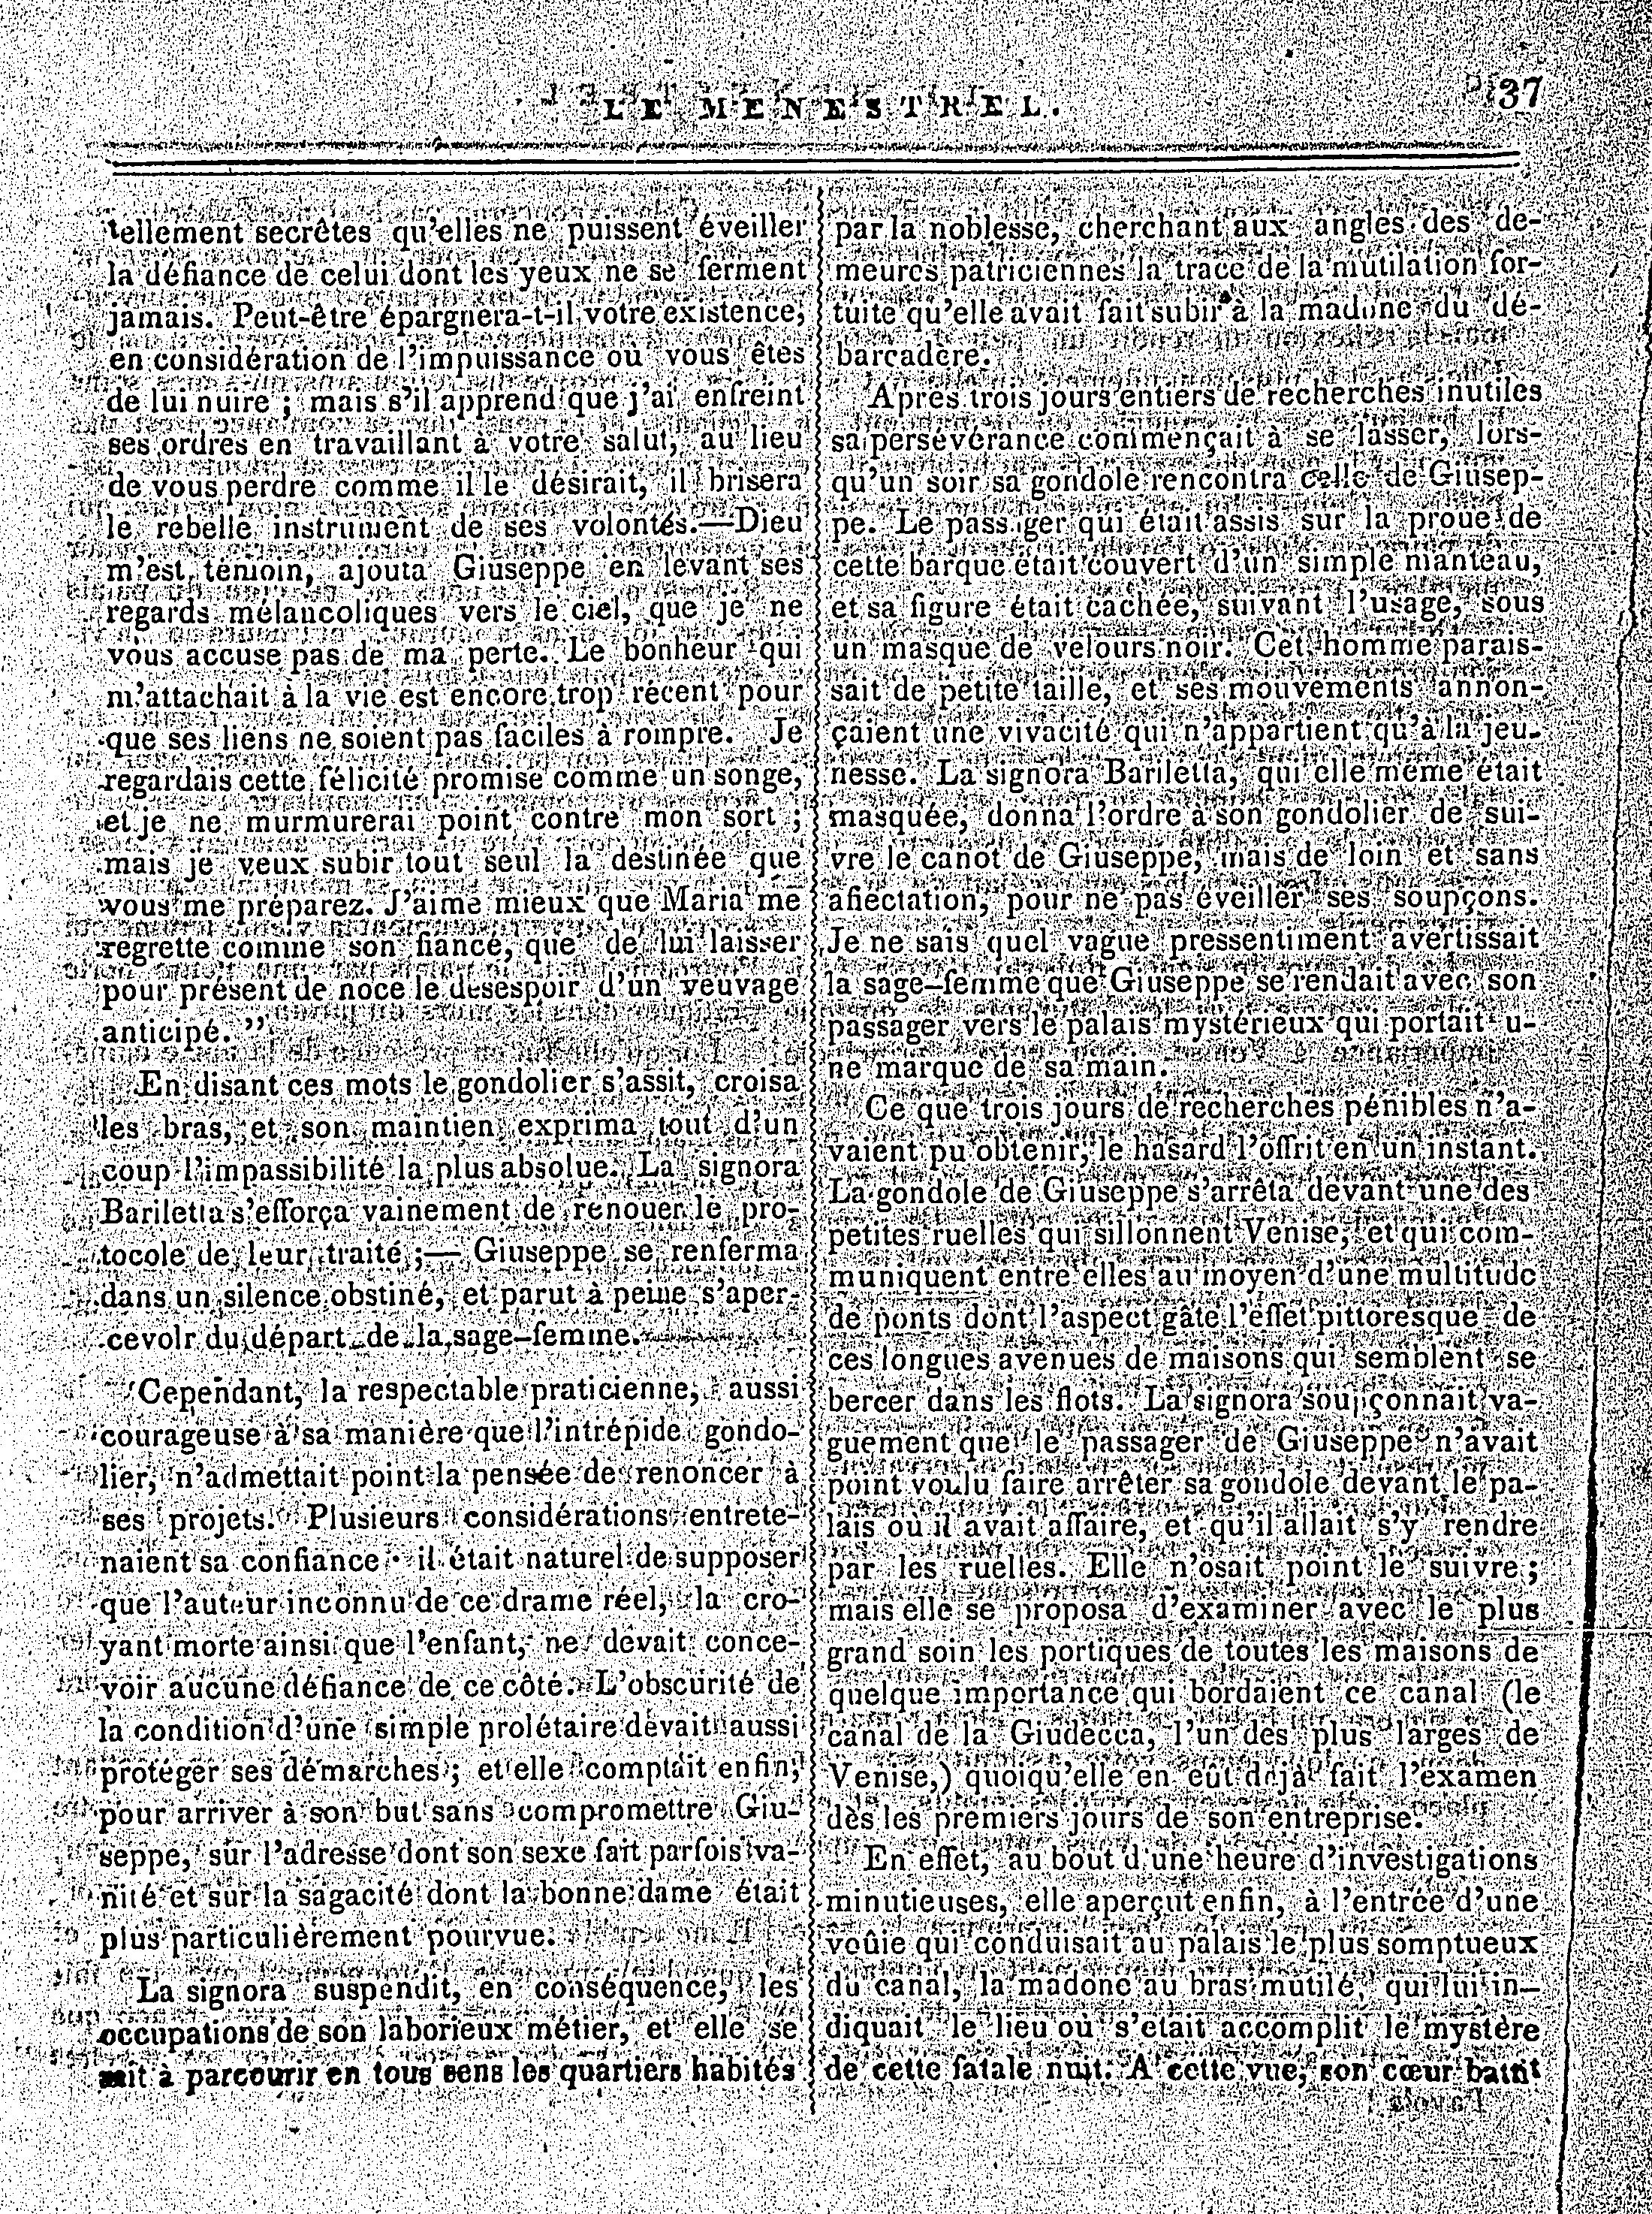 LE MENESTREL.
37
tellement secrètes qu'elles ne puissent éveiller
la défiance de celui dont les yeux ne se ferment
jamais. Peut-être épargnera-t-il votre existence,
en considération de l'impuissance où vous êtes
de lui nuire ; mais s'il apprend que j'ai enfreint
ses ordres en travaillant à votre salut, au lieu
de vous perdre comme il le désirait, il brisera
le rebelle instrument de ses volontés.—Dieu
m'est témoin, ajouta Giuseppe en levant ses
regards mélancoliques vers le ciel, que je ne
vous accuse pas de ma perte. Le bonheur qui
m'attachait à la vie est encore trop récent pour
que ses liens ne soient pas faciles à rompre. Je
regardais cette félicité promise comme un songe,
et je ne murmurerai point contre mon sort ;
mais je veux subir tout seul la destinée que
vous me préparez. J'aime mieux que Maria me
regrette comme son fiancé, que de lui laisser
pour présent de noce le désespoir d'un veuvage
anticipé."
En disant ces mots le gondolier s'assit, croisa
les bras, et son maintien exprima tout d'un
coup l'impassibilité la plus absolue. La signora
Bariletta s'efforça vainement de renouer le pro-
tocole de leur traité ;— Giuseppe se renferma
dans un silence obstiné, et parut à peine s'aper-
cevoir du départ de la sage-femme.
Cependant, la respectable praticienne, aussi
courageuse à sa manière que l'intrépide gondo-
lier, n'admettait point la pensée de renoncer à
ses projets. Plusieurs considérations entrete-
naient sa confiance : il était naturel de supposer
que l'auteur inconnu de ce drame réel, la cro-
yant morte ainsi que l'enfant, ne devait conce-
voir aucune défiance de ce côté. L'obscurité de
la condition d'une simple prolétaire devait aussi
protéger ses démarches ; et elle comptait enfin,
pour arriver à son but sans compromettre Giu-
seppe, sur l'adresse dont son sexe fait parfois va-
nité et sur la sagacité dont la bonne dame était
plus particulièrement pourvue.
La signora suspendit, en conséquence, les
occupations de son laborieux métier, et elle se
mit à parcourir en tous sens les quartiers habités
par la noblesse, cherchant aux angles des de-
meures patriciennes la trace de la mutilation for-
tuite qu'elle avait fait subir à la madone du dé-
barcadère.
Après trois jours entiers de recherches inutiles
sa persévérance commençait à se lasser, lors-
qu'un soir sa gondole rencontra celle de Giusep-
pe. Le passager qui était assis sur la proue de
cette barque était couvert d'un simple manteau,
et sa figure était cachée, suivant l'usage, sous
un masque de velours noir. Cet homme parais-
sait de petite taille, et ses mouvements annon-
çaient une vivacité qui n'appartient qu'à la jeu-
nesse. La signora Bariletta, qui elle même était
masquée, donna l'ordre à son gondolier de sui-
vre le canot de Giuseppe, mais de loin et sans
affectation, pour ne pas éveiller ses soupçons.
Je ne sais quel vague pressentiment avertissait
la sage-femme que Giuseppe se rendait avec son
passager vers le palais mystérieux qui portait u-
ne marque de sa main.
Ce que trois jours de recherches pénibles n'a-
vaient pu obtenir, le hasard l'offrit en un instant.
La gondole de Giuseppe s'arrêta devant une des
petites ruelles qui sillonnent Venise, et qui com-
muniquent entre elles au moyen d'une multitude
de ponts dont l'aspect gâte l'effet pittoresque de
ces longues avenues de maisons qui semblent se
bercer dans les flots. La signora soupçonnait va-
guement que le passager de Giuseppe n'avait
point voulu faire arrêter sa gondole devant le pa-
lais où il avait affaire, et qu'il allait s'y rendre
par les ruelles. Elle n'osait point le suivre ;
mais elle se proposa d'examiner avec le plus
grand soin les portiques de toutes les maisons de
quelque importance qui bordaient ce canal (le
canal de la Giudecca, l'un des plus larges de
Venise,) quoiqu'elle en eût déjà fait l'examen
dès les premiers jours de son entreprise.
En effet, au bout d'une heure d'investigations
minutieuses, elle aperçut enfin, à l'entrée d'une
voûte qui conduisait au palais le plus somptueux
du canal, la madone au bras mutilé, qui lui in-
diquait le lieu où s'était accomplit le mystère
de cette fatale nuit. A cette vue, son cœur battit